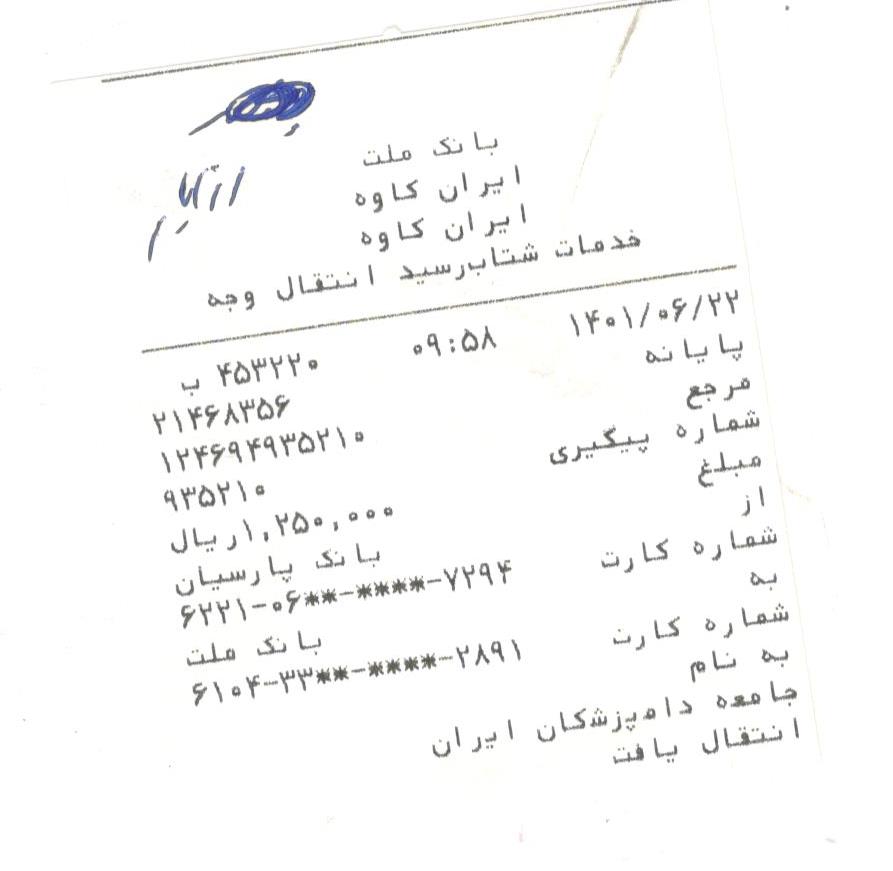 بانک ملت
ایران کاوه
ایران کاوه
خدمات شتاب‌رسید انتقال وجه
۱۴۰۱/۰۶/۲۲ ۰۹:۵۸ ۴۵۳۲۲۰ ب
پایانه ۲۱۴۶۸۳۵۶
مرجع ۱۲۴۶۹۴۹۳۵۲۱۰
شماره پیگیری ۹۳۵۲۱۰
مبلغ ۱,۲۵۰,۰۰۰ریال
از بانک پارسیان
شماره کارت ۶۲۲۱-۰۶**-****-۷۲۹۴
به بانک ملت
شماره کارت ۶۱۰۴-۳۳**-****-۲۸۹۱
به نام
جامعه دامپزشکان ایران
انتقال یافت